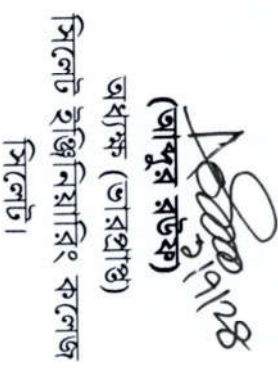 (আব্দুর রউফ)
অধ্যক্ষ (ভারপ্রাপ্ত)
সিলেট ইঞ্জিনিয়ারিং কলেজ
সিলেট।